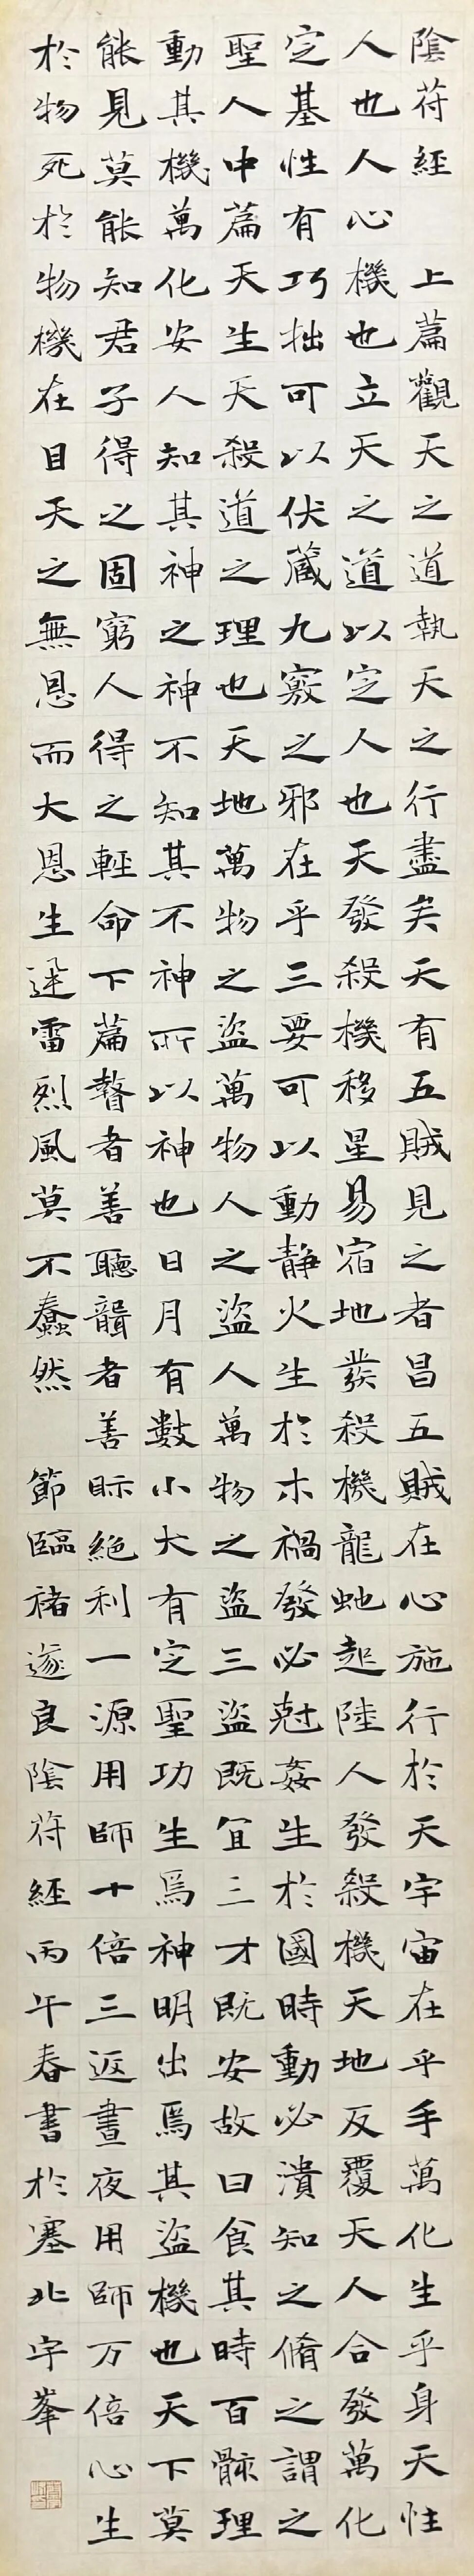 陰符經 上篇觀天之道執天之行盡矣天有五賊見之者昌五賊在心施行於天宇宙在乎手萬化生乎身天性
人也人心機也立天之道以定人也天發殺機移星易宿地發殺機龍虵起陸人發殺機天地反覆天人合發萬化
定基性有巧拙可以伏藏九竅之邪在乎三要可以動静火生於木禍發必尅姦生於國時動必潰知之脩之謂之
聖人中篇天生天殺道之理也天地萬物之盜萬物人之盜人萬物之盜三盜既宜三才既安故曰食其時百骸理
動其機萬化安人知其神之神不知其不神所以神也日月有數小大有定聖功生焉神明出焉其盜機也天下莫
能見莫能知君子得之固窮人得之輕命下篇瞽者善聽聾者善眎絶利一源用師十倍三返晝夜用師万倍心生
於物死於物機在目天之無恩而大恩生迅雷烈風莫不蠢然 節臨褚遂良陰符經丙午春書於塞北宇峯